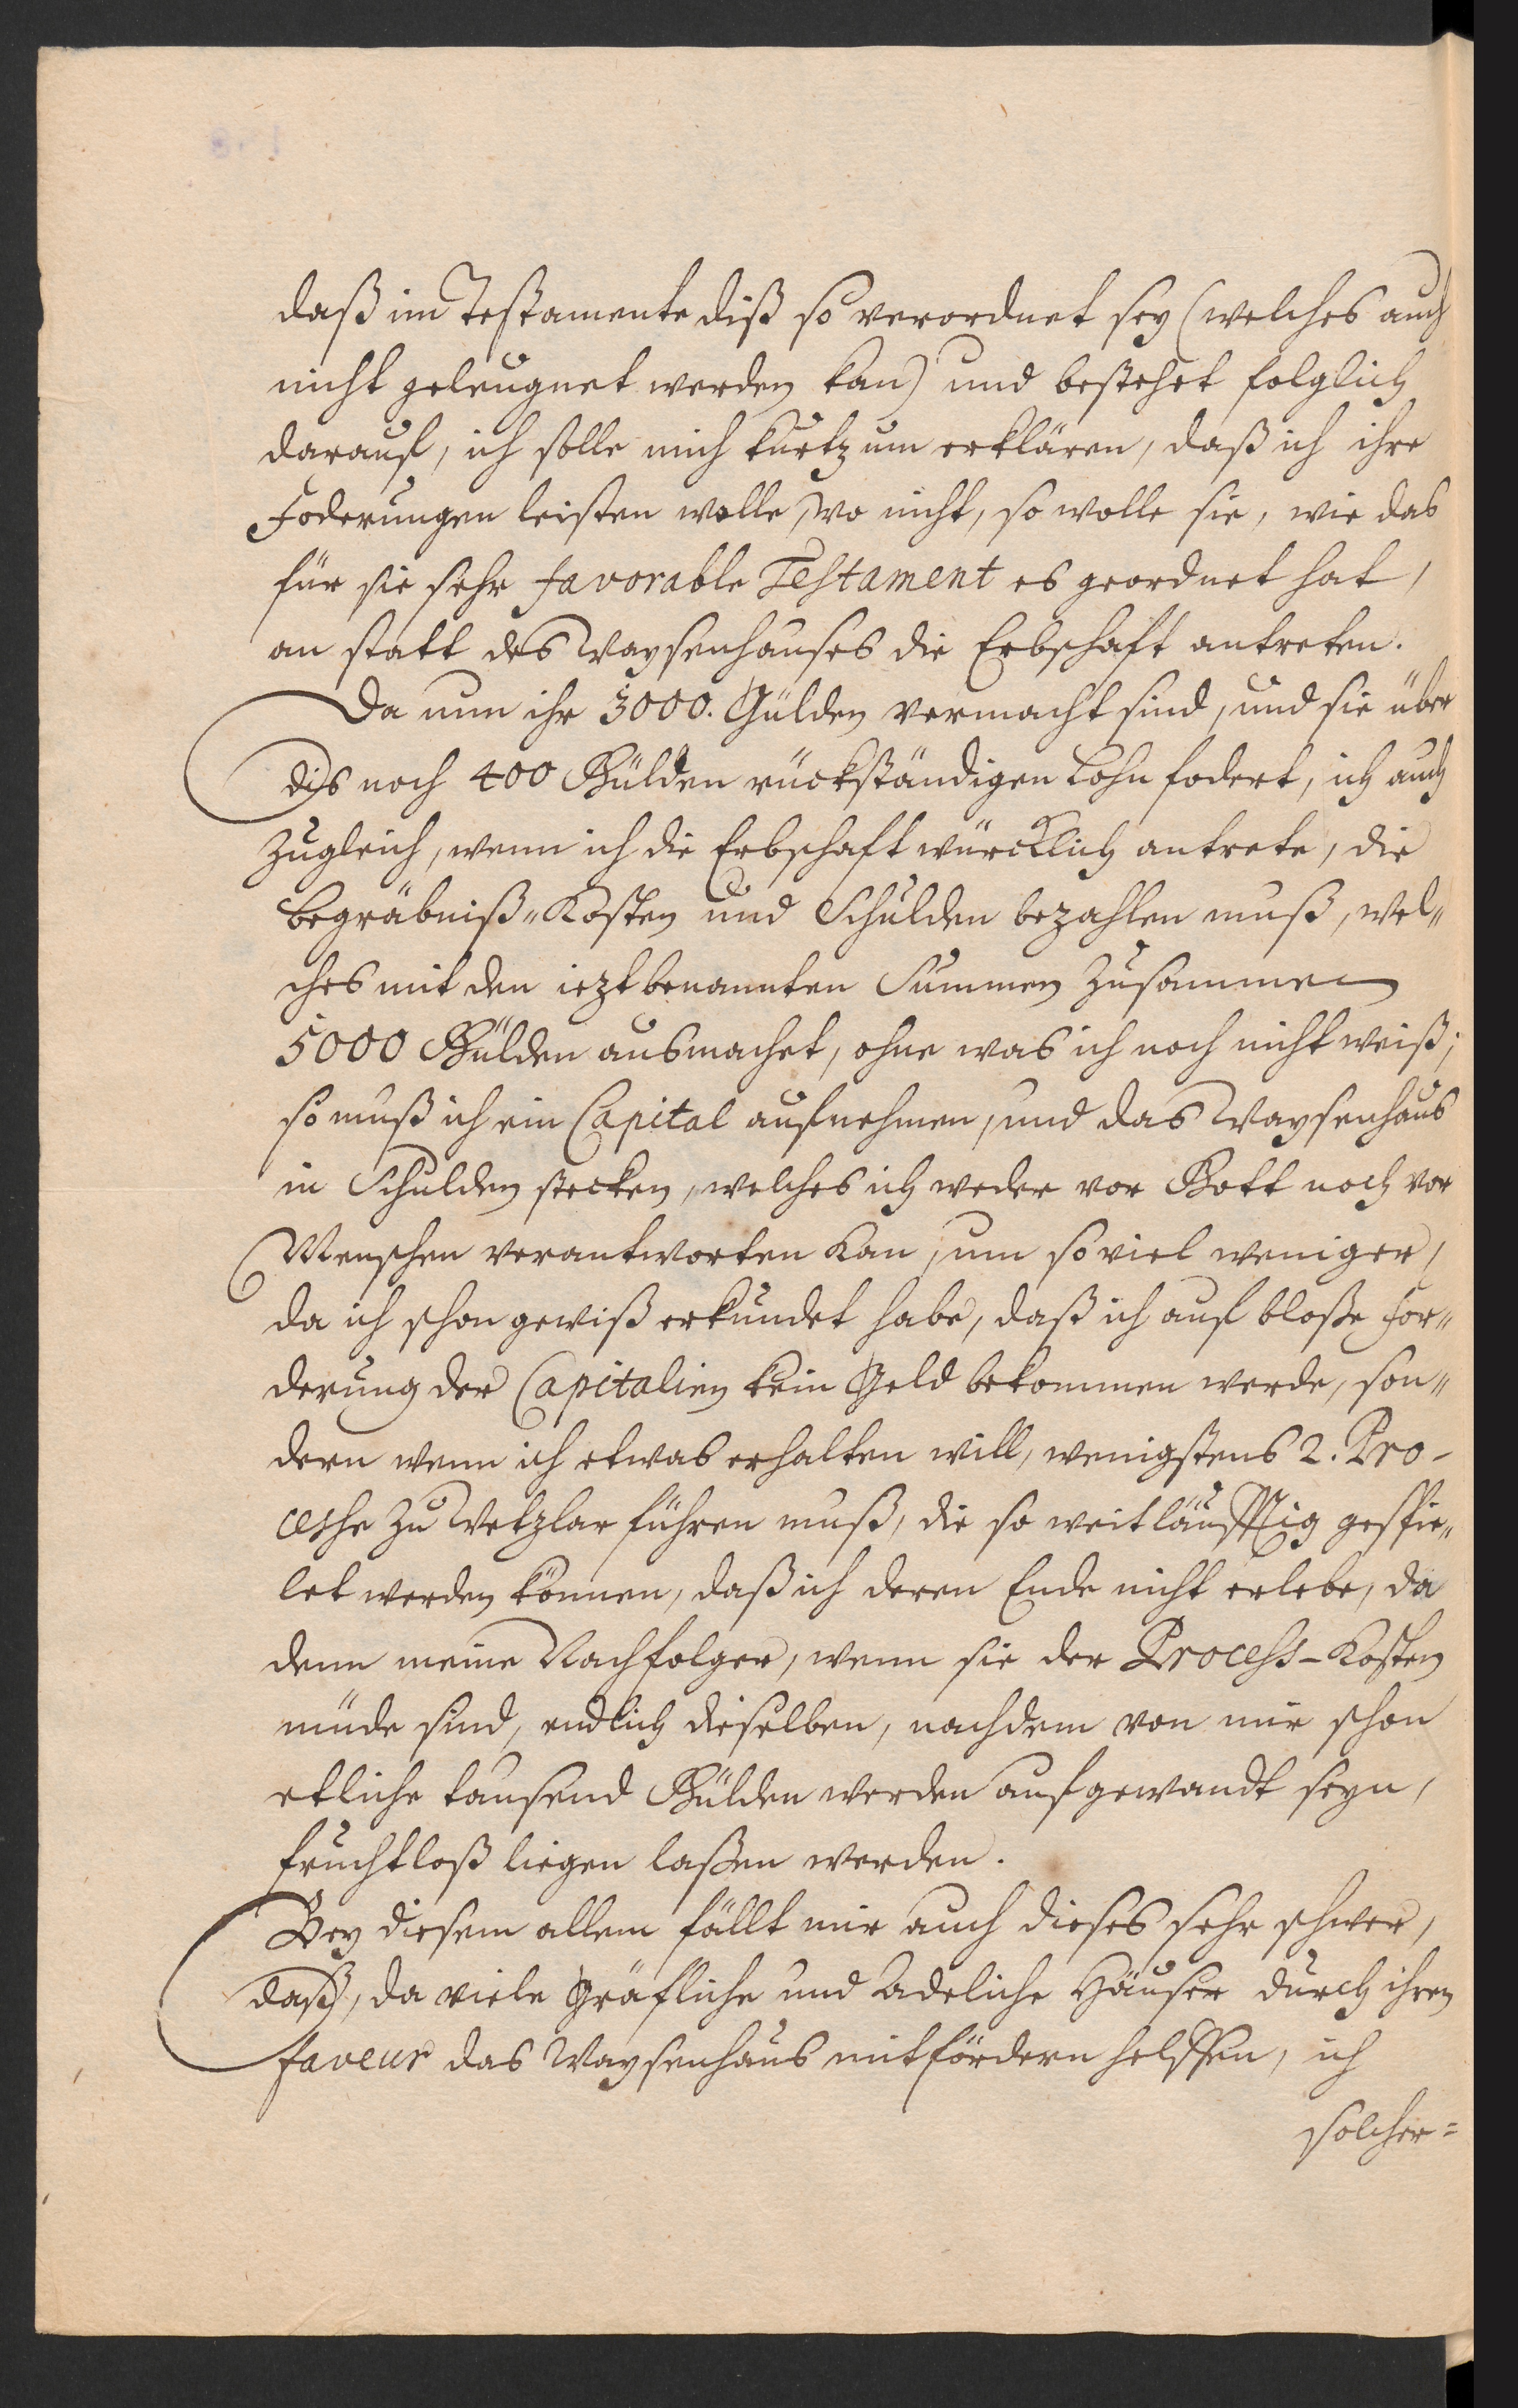 daß im Testamente diß so verordnet sey (welches auch
nicht geleugnet werden kan) und bestehet folglich
darauf, ich solle mich kurtz um erklären, daß ich ihre
Foderungen leisten wolle, wo nicht, so wolle sie, wie das
für sie sehr favorable Testament es geordnet hat,
an statt des Waysenhauses die Erbschaft antreten.
Da nun ihr 3000. Gülden vermacht sind, und sie über
dis noch 400 Gülden rückständigen Lohn fodert, ich auch
zugleich, wenn ich die Erbschaft würcklich antrete, die
Begräbniß-Kosten und Schulden bezahlen muß, wel-
ches mit den iezt benannten Summen zusammen
5000 Gülden ausmachet, ohne was ich noch nicht weiß;
so muß ich ein Capital aufnehmen, und das Waysenhaus
in Schulden stecken, welches ich weder vor Gott noch vor
Menschen verantworten kan, um so viel weniger,
da ich schon gewiß erkundet habe, daß ich auf bloße For-
derung der Capitalien kein Geld bekommen werde, son-
dern wenn ich etwas erhalten will, wenigstens 2. Pro-
cesse zu Wetzlar führen muß, die so weitläufftig gespie-
let werden können, daß ich deren Ende nicht erlebe, da
denn meine Nachfolger, wenn sie der Process-Kosten
müde sind, endlich dieselben, nachdem von mir schon
etliche tausend Gülden werden aufgewandt seyn,
fruchtloß liegen laßen werden.
Bey diesem allem fällt mir auch dieses sehr schwer,
daß, da viele Gräfliche und Adeliche Häuser durch ihren
faveur das Waysenhaus mit fördern helffen, ich
solcher=